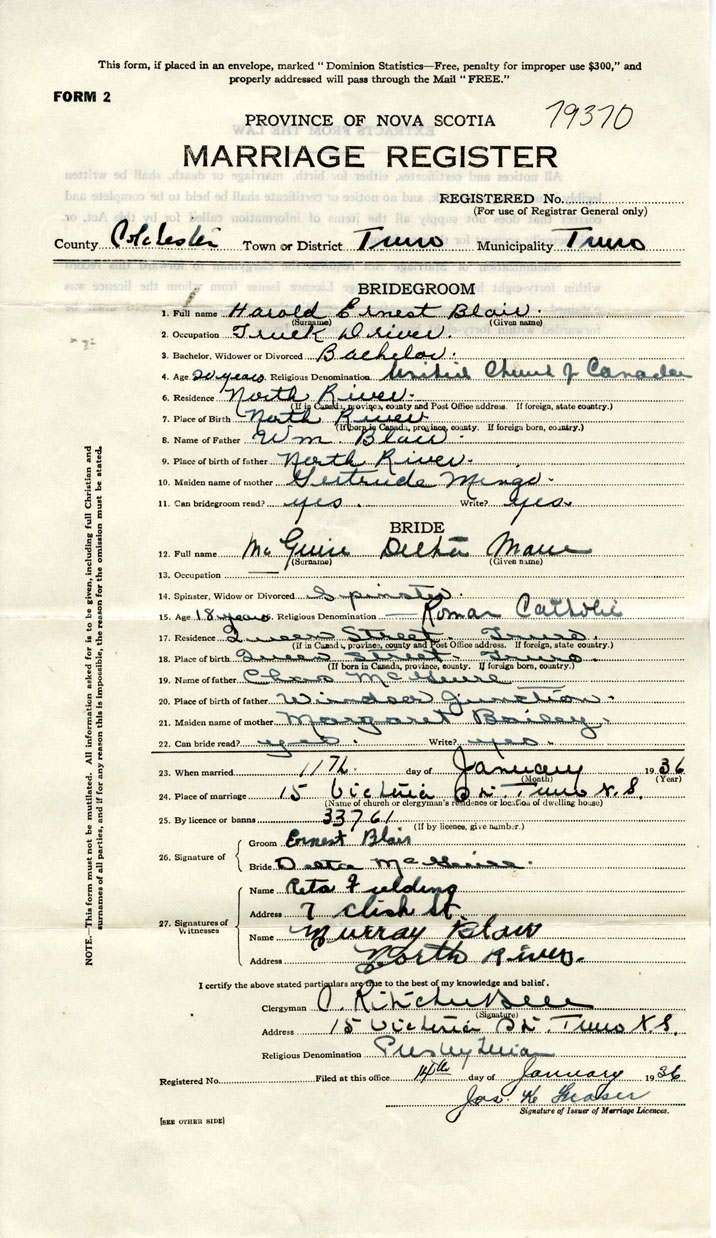 This form, if placed in an envelope, marked "Dominion Statistics—Free, penalty for improper use $300," and
properly addressed will pass through the Mail "FREE."
FORM 2
79370
PROVINCE OF NOVA SCOTIA
MARRIAGE REGISTER
REGISTERED No.
(For use of Registrar General only)
County Colchester Town or District Truro Municipality Truro
BRIDEGROOM
1. Full name Harold Ernest Blair.
(Surname) (Given name)
2. Occupation Truck Driver.
3. Bachelor, Widower or Divorced Bachelor.
4. Age 20 years Religious Denomination United Church of Canada
6. Residence North River.
(If in Canada, province, county and Post Office address. If foreign, state country.)
7. Place of Birth North River
(If born in Canada, province, county. If foreign born, country.)
8. Name of Father Wm. Blair.
9. Place of birth of father North River.
10. Maiden name of mother Gertrude Mingo.
11. Can bridegroom read? yes. Write? yes.
BRIDE
12. Full name McGuire Delta Marie
(Surname) (Given name)
13. Occupation —
14. Spinster, Widow or Divorced Spinster.
15. Age 18 years Religious Denomination — Roman Catholic
17. Residence Queen Street. Truro.
(If in Canada, province, county and Post Office address. If foreign, state country.)
18. Place of birth Queen Street. Truro.
(If born in Canada, province, county. If foreign born, country.)
19. Name of father Chas McGuire
20. Place of birth of father Windsor Junction.
21. Maiden name of mother Margaret Bailey.
22. Can bride read? yes. Write? yes.
23. When married 11th day of January 1936
(Month) (Year)
24. Place of marriage 15 Victoria St. Truro N.S.
(Name of church or clergyman's residence or location of dwelling house)
25. By licence or banns 33761
(If by licence, give number.)
26. Signature of
Groom Ernest Blair
Bride Delta McGuire.
27. Signatures of Witnesses
Name Reta Fielding
Address 7 St.
Name Murray Blair
Address North River.
I certify the above stated particulars are true to the best of my knowledge and belief.
Clergyman
(Signature)
Address 15 Victoria St. Truro N.S.
Religious Denomination Presbyterian
Registered No. Filed at this office 14th day of January 1936
Jos. K Fraser
Signature of Issuer of Marriage Licences.
[SEE OTHER SIDE]
NOTE.—This form must not be mutilated. All information asked for is to be given, including full Christian and
surnames of all parties, and if for any reason this is impossible, the reason for the omission must be stated.